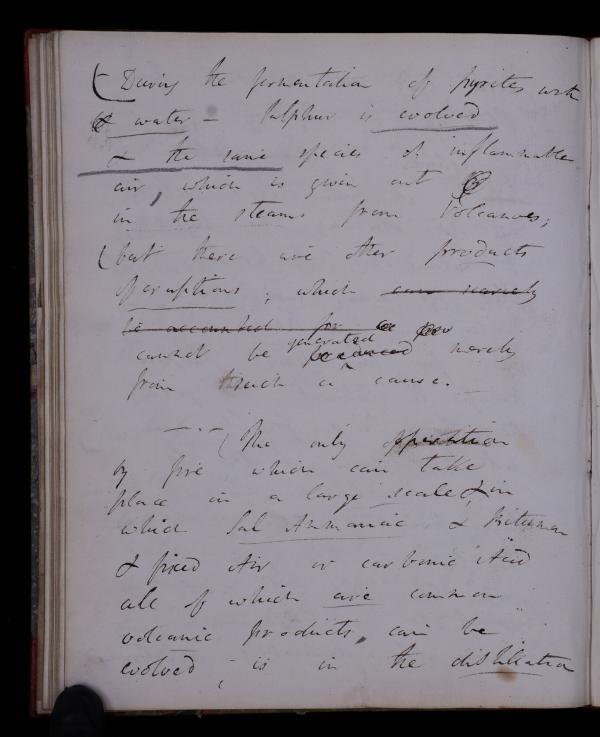 (During the fermentation of pyrites with
& water – Sulphur is evolved
& the same species of inflammable
air, which is given out
in the steams from Volcanoes;
(but there are other products
of eruptions; which can scarcely
be accounted for
generated
cannot be produced merely
from such a cause.
— " – (The only operation
by fire which can take
place in a large scale & in
which Sal Ammoniac & Bitumen
& fixed Air or carbonic Acid
all of which are common
volcanic products, can be
evolved; is in the distillation